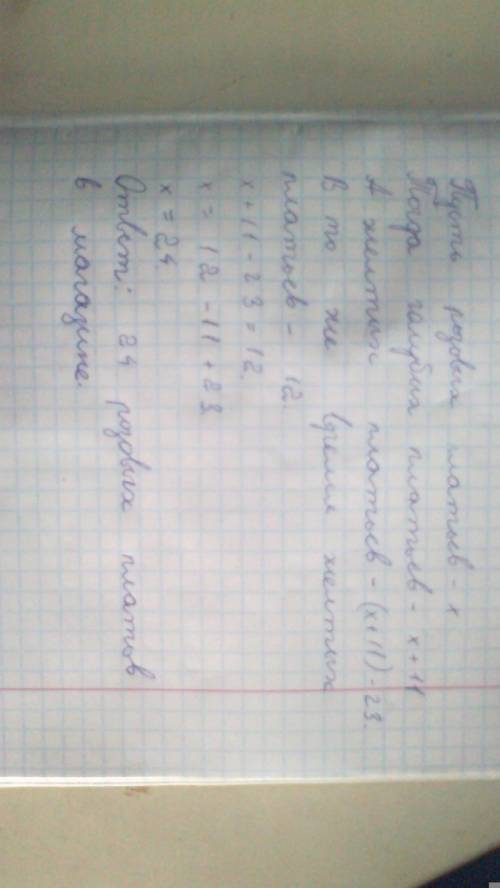 Пусть розовых платьев - х
Тогда голубых платьев - х+11
А желтых платьев - (х+11)-23.
В то же время желтых
платьев - 12.
х+11-23=12.
х = 12-11+23
х = 24.
Ответ: 24 розовых платьев
в магазине.